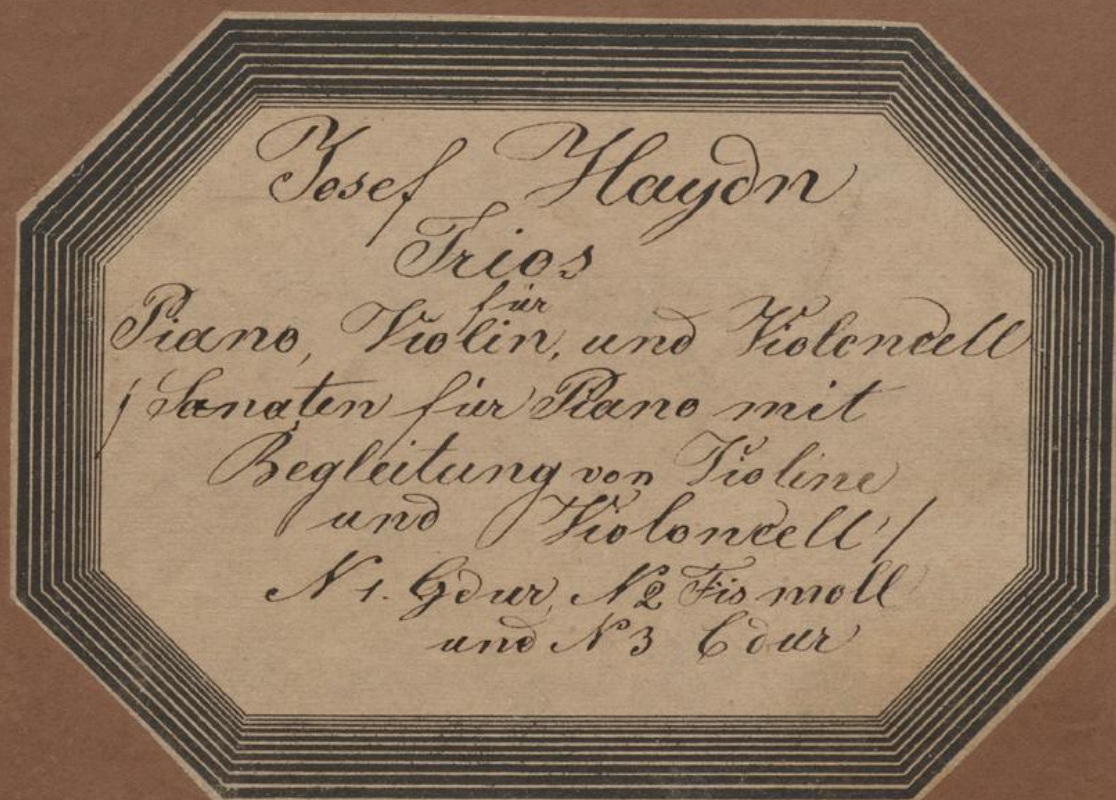 Josef Haydn
Trios
für
Piano, Violin, und Violoncell
/ Sonaten für Piano mit
Begleitung von Violine
und Violoncell /
N 1. Gdur, N 2 Fis moll
und N 3 Cdur